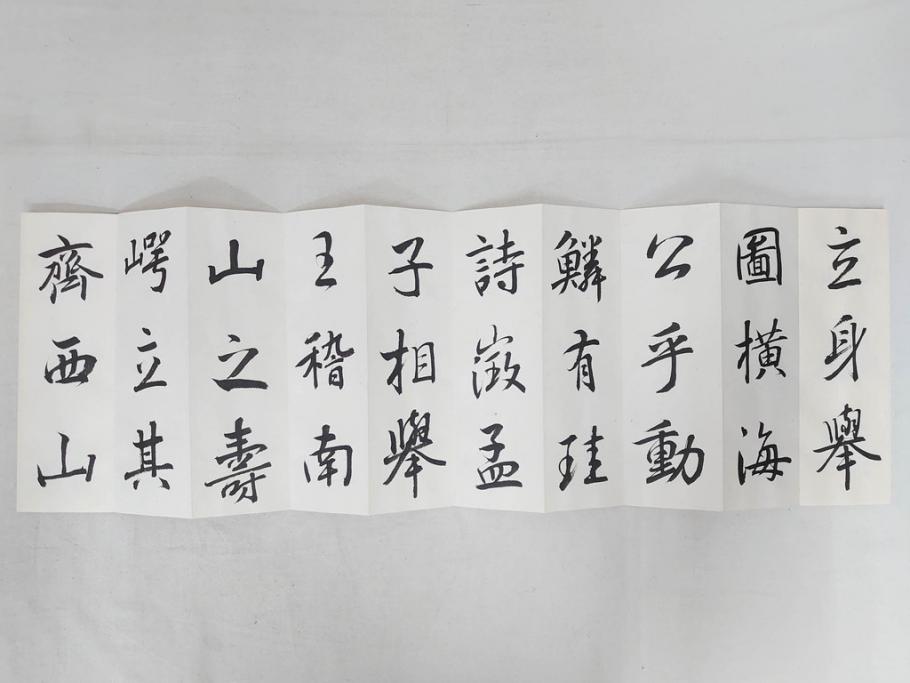 立身舉
圖橫海
公乎動
鱗有珪
詩激孟
子相舉
王稽南
山之壽
崿立其
齊西山